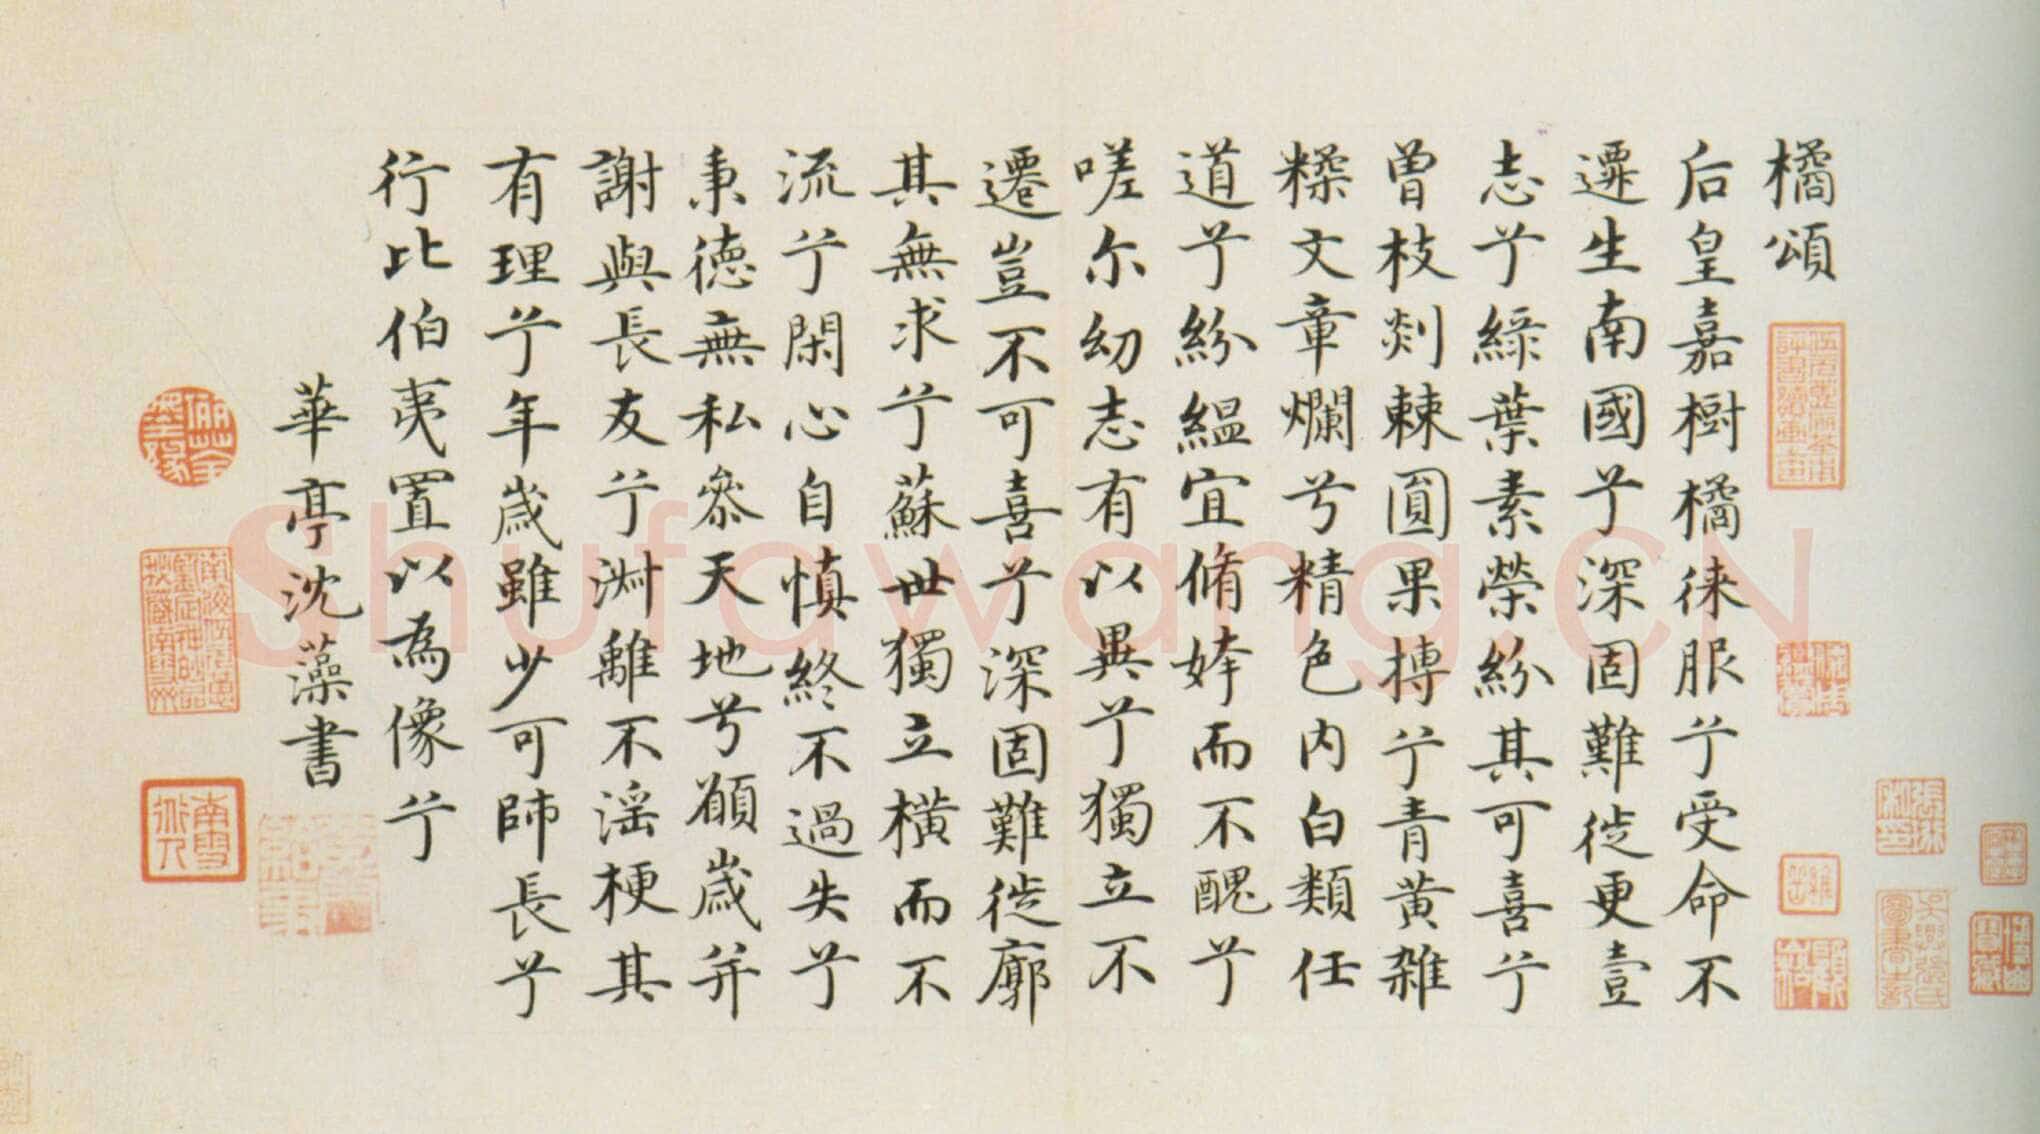 橘頌
后皇嘉樹橘徠服兮受命不
遷生南國兮深固難徙更壹
志兮緑葉素榮紛其可喜兮
曾枝剡棘圓果摶兮青黄雑
糅文章爛兮精色内白類任
道兮紛緼宜脩姱而不醜兮
嗟尔幼志有以異兮獨立不
遷豈不可喜兮深固難徙廓
其無求兮蘇世獨立横而不
流兮閑心自慎終不過失兮
秉德無私叅天地兮願歲并
謝與長友兮淋離不滛梗其
有理兮年歲雖少可師長兮
行比伯夷置以為像兮
華亭沈藻書
南雪
Shufawang.CN